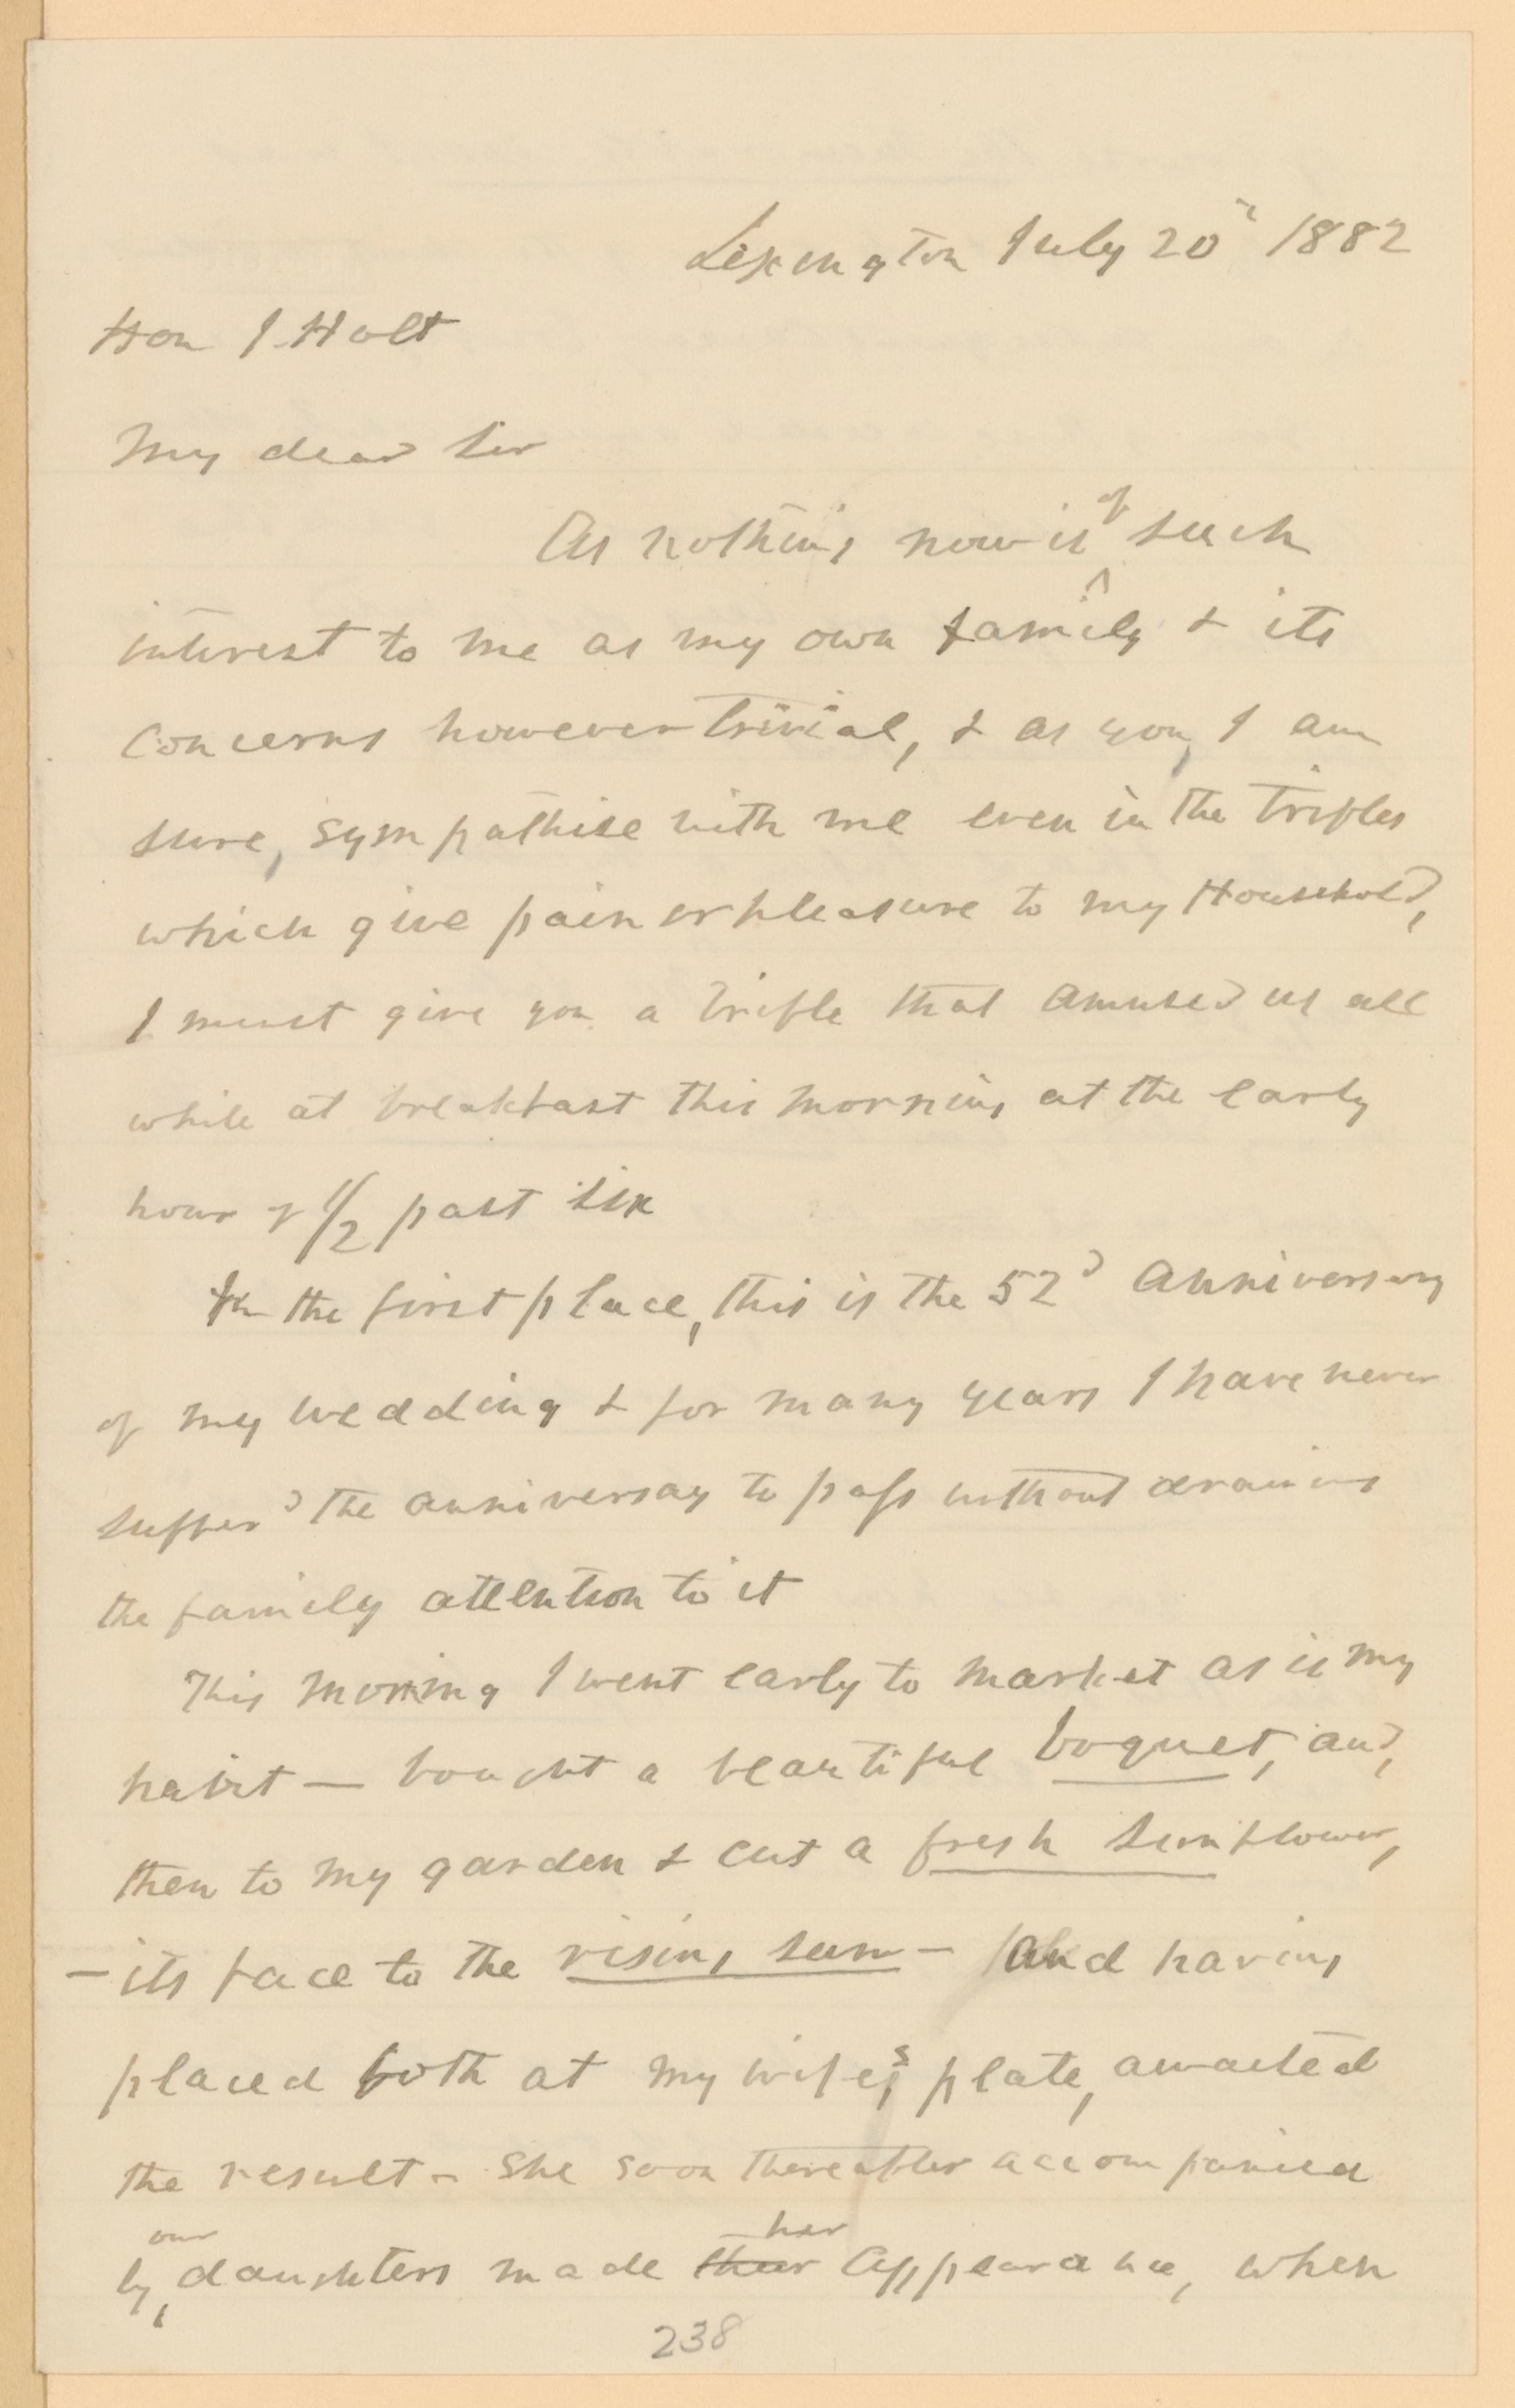 Lexington July 20" 1882
Hon J. Holt
My dear Sir
As nothing now is of such
interest to me as my own family & its
concerns however trivial, & as you, I am
sure, sympathise with me even in the trifles
which give pain or pleasure to my Household,
I must give you a trifle that amused us all
while at breakfast this morning at the early
hour of 1/2 past six
In the first place, this is the 52d Anniversary
of my wedding & for many years I have never
suffer'd the anniversay to pass without drawing
the family attention to it
This morning I went early to market as is my
habit — bought a beautiful boquet, and,
then to my garden & cut a fresh sunflower,
— its face to the rising sun — and having
placed both at my wife's plate, awaited
the result — She soon thereafter accompanied
by our daughters made their her appearance, when
238